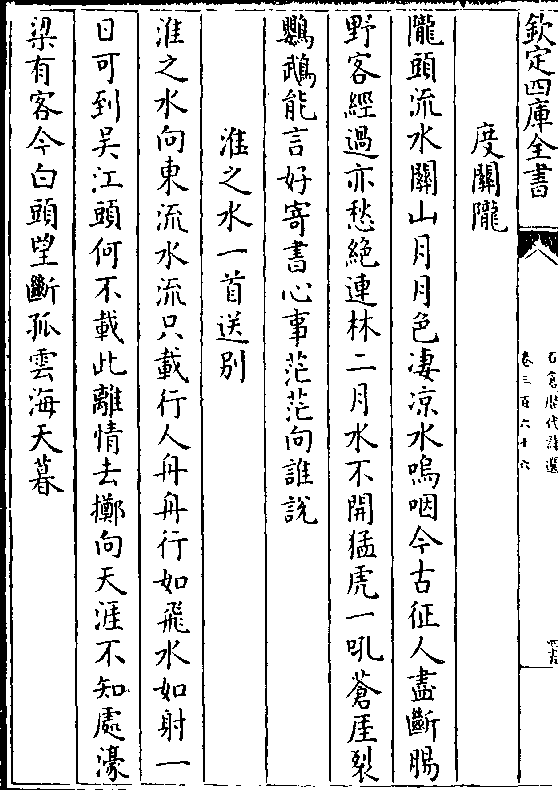 欽定四庫全書
石倉歷代詩選
卷三百六十六
度關隴
隴頭流水關山月月色凄凉水嗚咽今古征人盡斷腸
野客經過亦愁絶連林二月水不開猛虎一吼蒼厓裂
鸚鵡能言好寄書心事茫茫向誰說
淮之水一首送别
淮之水向東流水流只載行人舟舟行如飛水如射一
日可到吴江頭何不載此離情去擲向天涯不知處濠
梁有客今白頭望斷孤雲海天暮